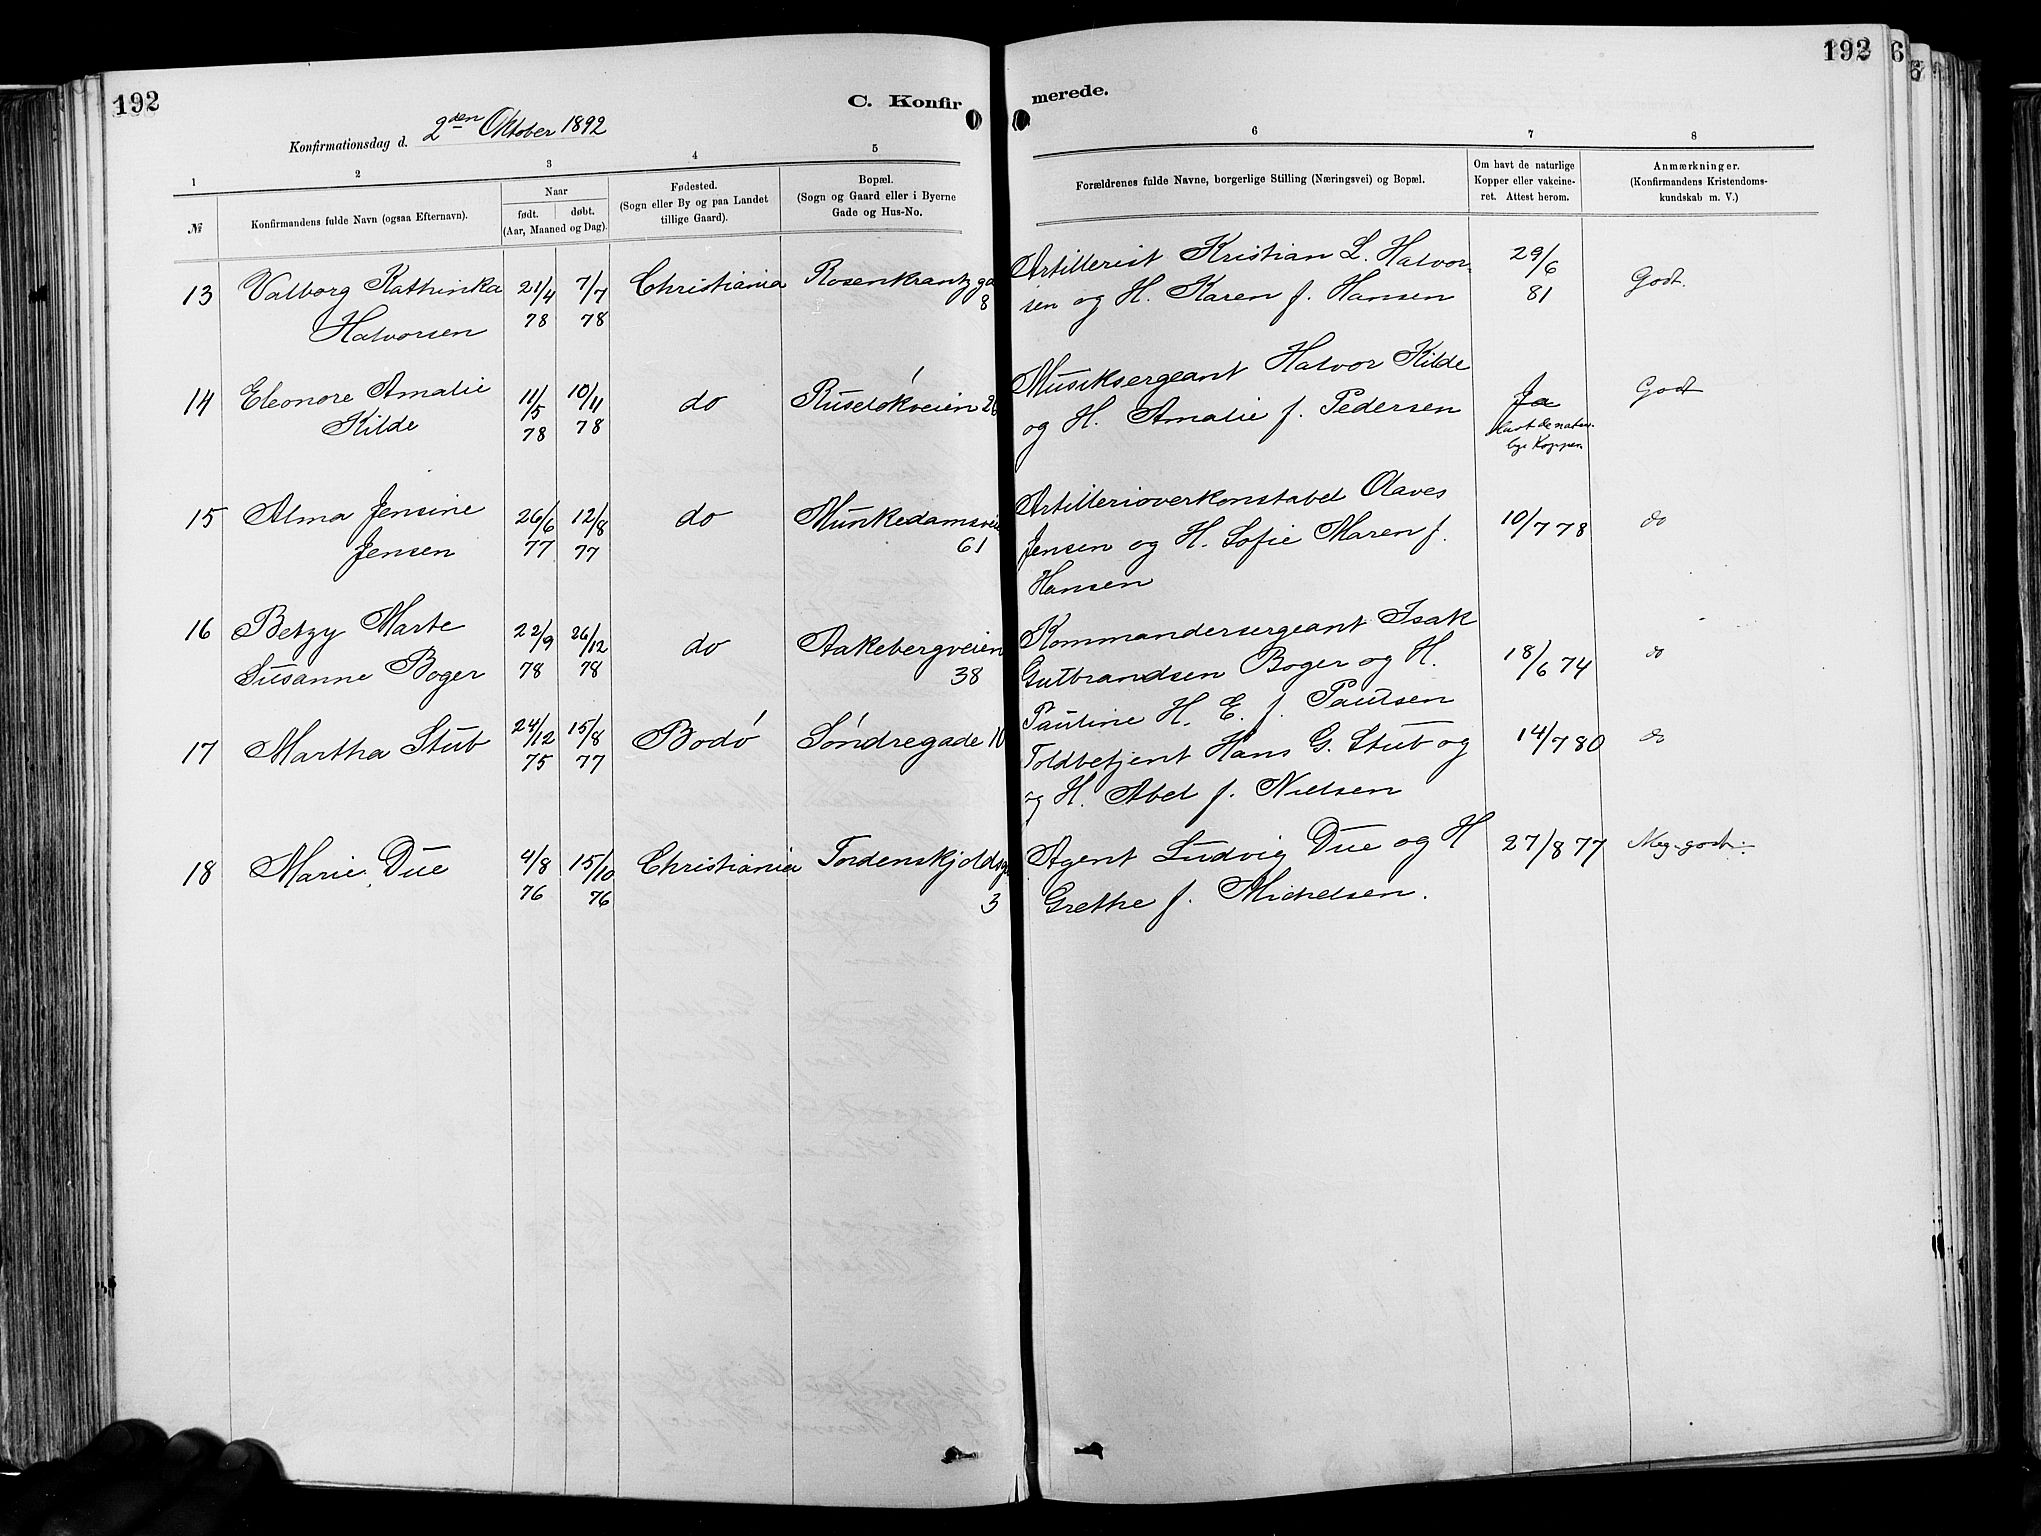 192
192
6
C. Konfirmerede.
Konfirmationsdag d. 2den Oktober 1892
1
2
3
4
5
6
7
8
№
Konfirmandens fulde Navn (ogsaa Efternavn).
Naar
født. døbt.
(Aar, Maaned og Dag).
Fødested.
(Sogn eller By og paa Landet
tillige Gaard).
Bopæl.
(Sogn og Gaard eller i Byerne
Gade og Hus-No.
Forældrenes fulde Navne, borgerlige Stilling (Næringsvei) og Bopæl.
Om havt de naturlige
Kopper eller vakcine-
ret. Attest herom.
Anmærkninger.
(Konfirmandens Kristendoms-
kundskab m. V.)
13 Valborg Kathinka 21/4 7/7 Christiania Rosenkrantzga Artillerist Kristian L. Halvor- 29/6 Godt.
Halvorsen 78 78 8 sen og H. Karen f. Hansen 81
14 Eleonore Amalie 11/5 10/11 do Ruseløkveien 26 Musiksergeant Halvor Kilde Ja Godt
Kilde 78 78 og H. Amalie f. Pedersen havt de natur-
lige Kopper.
15 Alma Jensine 26/6 12/8 do Munkedamsveien Artillerioverkonstabel Olaves 10/7 78 do
Jensen 77 77 61 Jensen og H. Sofie Maren f.
Hansen
16 Betzy Marte 22/9 26/12 do Aakebergveien Kommandersergeant Isak 18/6 74 do
Susanne Boger 78 78 38 Gulbrandsen Boger og H.
Pauline H. E. f. Paulsen
17 Martha Stub 24/12 15/8 Bodó Søndregade 10 Toldbetjent Hans G. Stub og 14/7 80 do
75 77 og H. Abel f. Nielsen
18 Marie Due 4/8 15/10 Christiania Tordenskjoldsg Agent Ludvig Due og H 27/8 77 Meg. godt.
76 76 3 Grethe f. Michelsen.